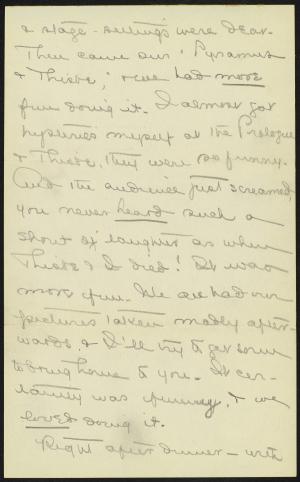 & stage-settings were dear.
Then came our 'Pyramus
& Thisbe,' & we had more
fun doing it. I almost got
hysterics myself at the Prologue
& Thisbe, they were so funny.
And the audience just screamed,
you never heard such a
shout of laughter as when
Thisbe & I died! It was
more fun. We all had our
pictures taken madly after-
wards, & I'll try to get some
to bring home to you. It cer-
tainly was funny, & we
loved doing it.
Right after dinner – with